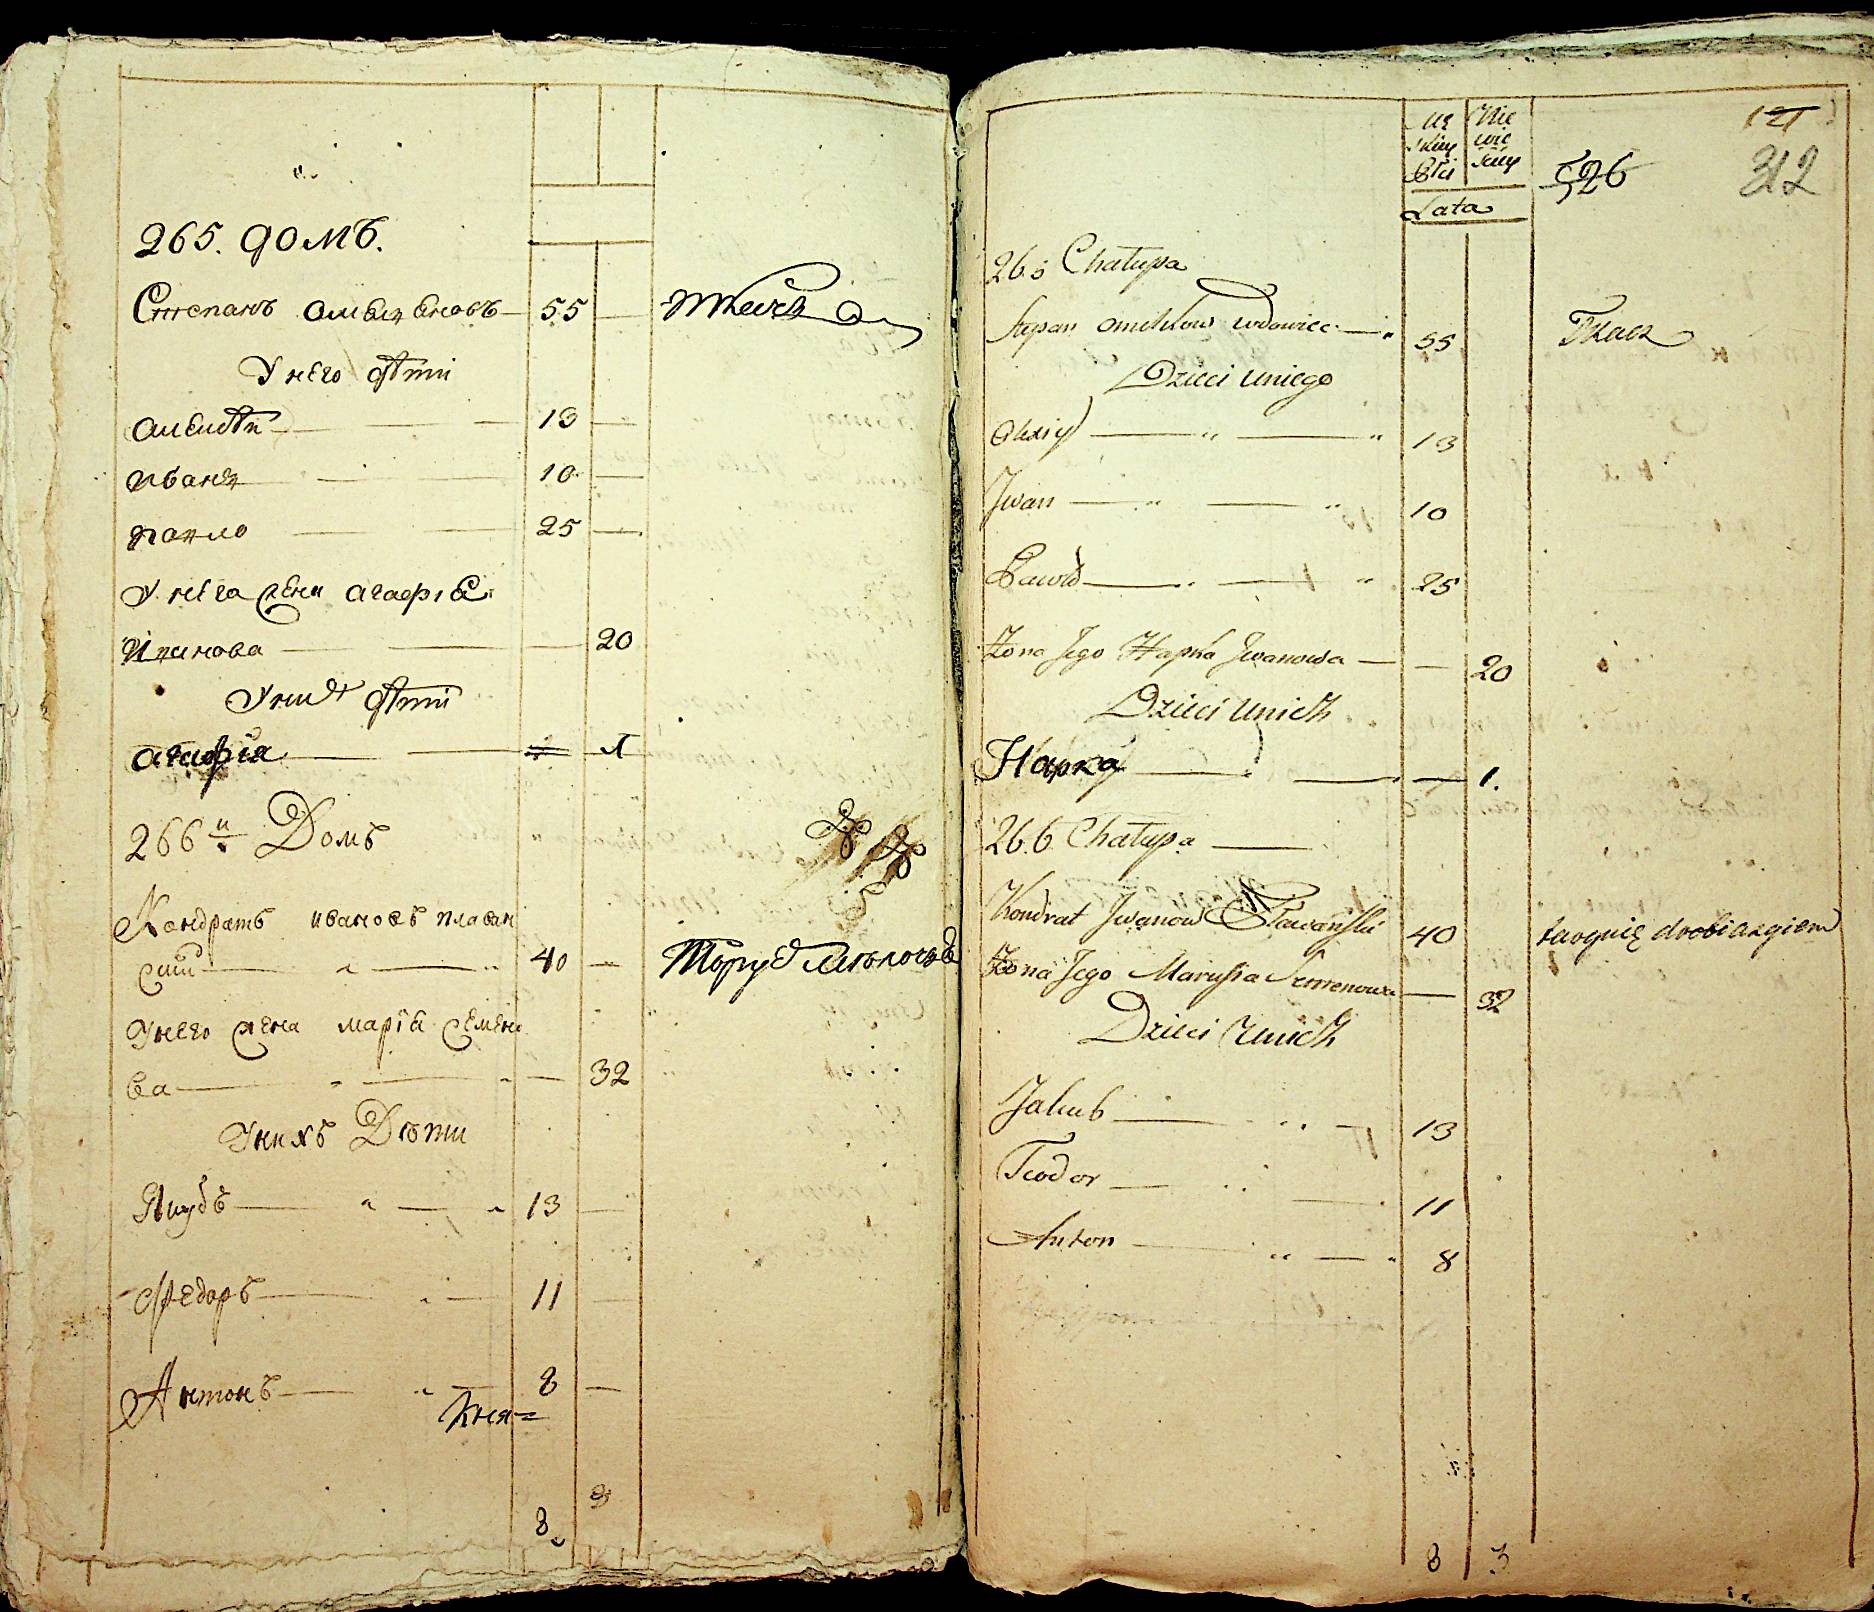 265. домъ.
Степанъ Омельяновъ 55 ткачъ
У него дѣти
Алексѣй 13
Иванъ 10
Павло 25
У него жена Агафiя
Иванова 20
У них дѣти
Агафiя 1
266й Домъ
Кондратъ Ивановъ Плаван
скiй 40 Торуе мѣлочью
У него жена Марiя Семено
ва 32
У нихъ Дѣти
Якубъ 13
Федоръ 11
Антонъ 8
8 3
Mę Nie
skiey wie
Płci sciey
Lata
121
312
526
265 Chałupa
Stepan Omelkow wdowiec 55 Tkacz
Dzieci u niego
Alexiy 13
Jwan 10
Pawło 25
Żona Jego Hapka Jwanowa 20
Dzieci u nich
Hapka 1.
266 Chałupa
Kondrat Jwanow Pławański 40 targuię drobiazgiem
Żona Jego Marysia Semenowa 32
Dzieci u nich
Jakub 13
Teodor 11
Anton 8
8 3